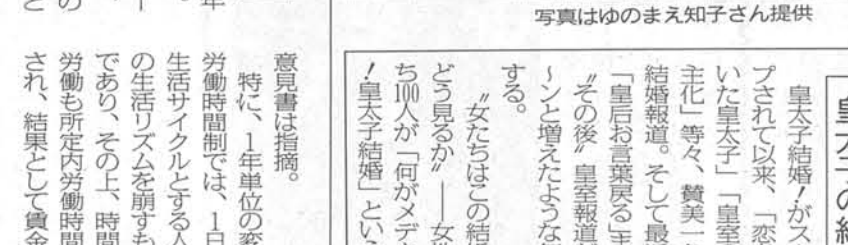 写真はゆのまえ知子さん提供
皇太子の結
皇太子結婚!がス
プされて以来、「恋
いた皇太子」「皇室
主化」等々、賛美一
結婚報道。そして最
「皇后お言葉戻る」
〝その後〟皇室報道
〜ンと増えたような
する。
〝女たちはこの結
どう見るか〟――女
ち100人が「何がメデ
!皇太子結婚」とい
年
。
ー
の
と
意見書は指摘。
特に、1年単位の変
労働時間制では、1日
生活サイクルとする人
の生活リズムを崩すも
であり、その上、時間
労働も所定内労働時間
され、結果として賃金